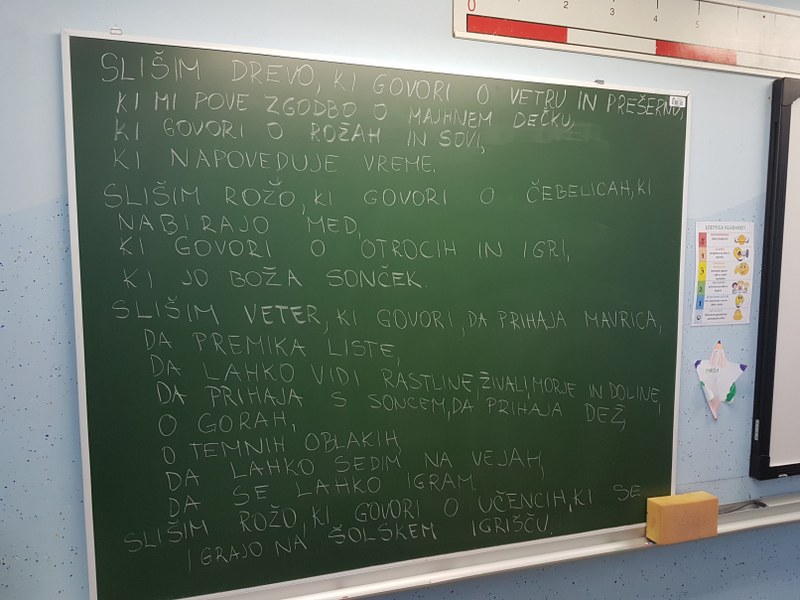 0 1 2 3 4 5
SLIŠIM DREVO, KI GOVORI O VETRU IN PREŠERNU,
KI MI POVE ZGODBO O MAJHNEM DEČKU,
KI GOVORI O ROŽAH IN SOVI,
KI NAPOVEDUJE VREME.
SLIŠIM ROŽO, KI GOVORI O ČEBELICAH, KI
NABIRAJO MED,
KI GOVORI O OTROCIH IN IGRI,
KI JO BOŽA SONČEK.
SLIŠIM VETER, KI GOVORI, DA PRIHAJA MAVRICA,
DA PREMIKA LISTE,
DA LAHKO VIDI RASTLINE, ŽIVALI, MORJE IN DOLINE,
DA PRIHAJA S SONCEM, DA PRIHAJA DEŽ,
O GORAH,
O TEMNIH OBLAKIH,
DA LAHKO SEDIM NA VEJAH,
DA SE LAHKO IGRAM.
SLIŠIM ROŽO, KI GOVORI O UČENCIH, KI SE
IGRAJO NA ŠOLSKEM IGRIŠČU.